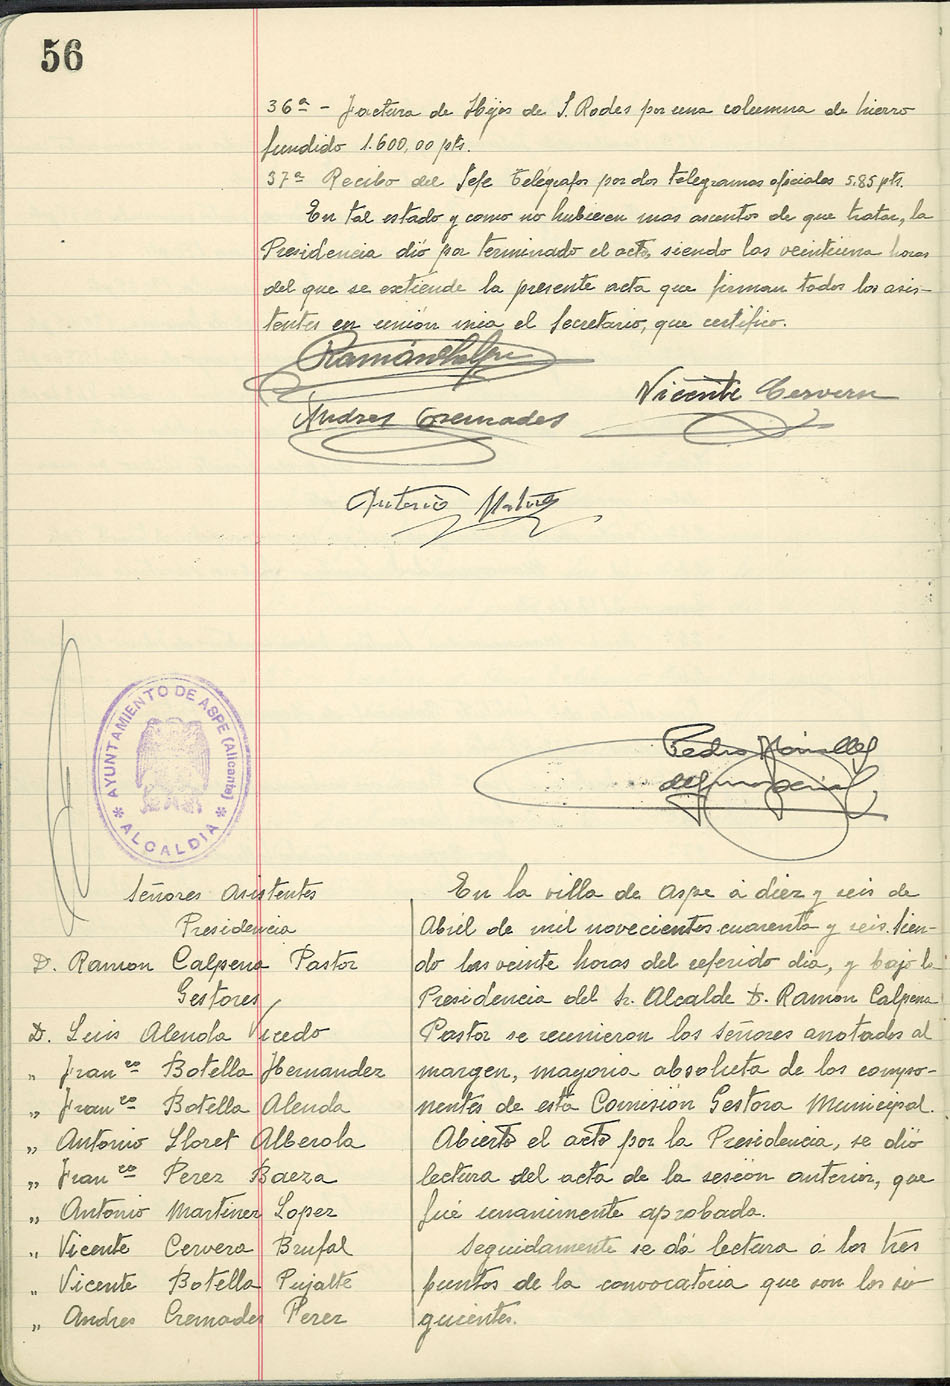 56
36ª - Factura de Hijos de S. Rodes por una columna de hierro
fundido 1.600,00 pts.
37ª Recibo del Jefe Telégrafos por dos telegramas oficiales 5.85 pts.
En tal estado y como no hubiesen mas asuntos de que tratar, la
Presidencia dió por terminado el acto, siendo las veintiuna horas
del que se extiende la presente acta que firman todos los asis-
tentes en unión mia el Secretario, que certifico.
Ramón Calpena
Vicente Cervera
Andres Cremades
Antonio
AYUNTAMIENTO DE ASPE (Alicante)
* ALCALDIA *
Pedro
Señores Asistentes
Presidencia
D. Ramon Calpena Pastor
Gestores
D. Luis Alenda Vicedo
„ Franco Botella Hernandez
„ Franco Botella Alenda
„ Antonio Lloret Alberola
„ Franco Perez Baeza
„ Antonio Martinez Lopez
„ Vicente Cervera Brufal
„ Vicente Botella Pujalte
„ Andres Cremades Perez
En la villa de Aspe á diez y seis de
Abril de mil novecientos cuarenta y seis. Sien-
do las veinte horas del referido dia, y bajo la
Presidencia del Sr. Alcalde D. Ramon Calpena
Pastor se reunieron los señores anotados al
margen, mayoria absoluta de los compo-
nentes de esta Comisión Gestora Municipal.
Abierto el acto por la Presidencia, se dió
lectura del acta de la sesión anterior, que
fué unanimente aprobada.
Seguidamente se dá lectura á los tres
puntos de la convocatoria que son los si
guientes.